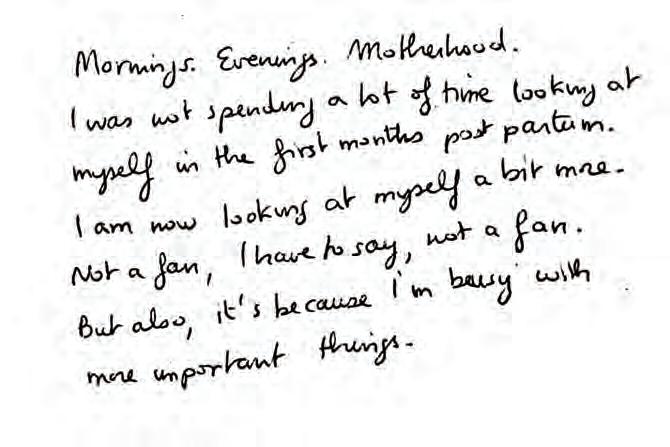 Mornings. Evenings. Motherhood.
I was not spending a lot of time looking at
myself in the first months post partum.
I am now looking at myself a bit more.
Not a fan, I have to say, not a fan.
But also, it's because I'm busy with
more important things.